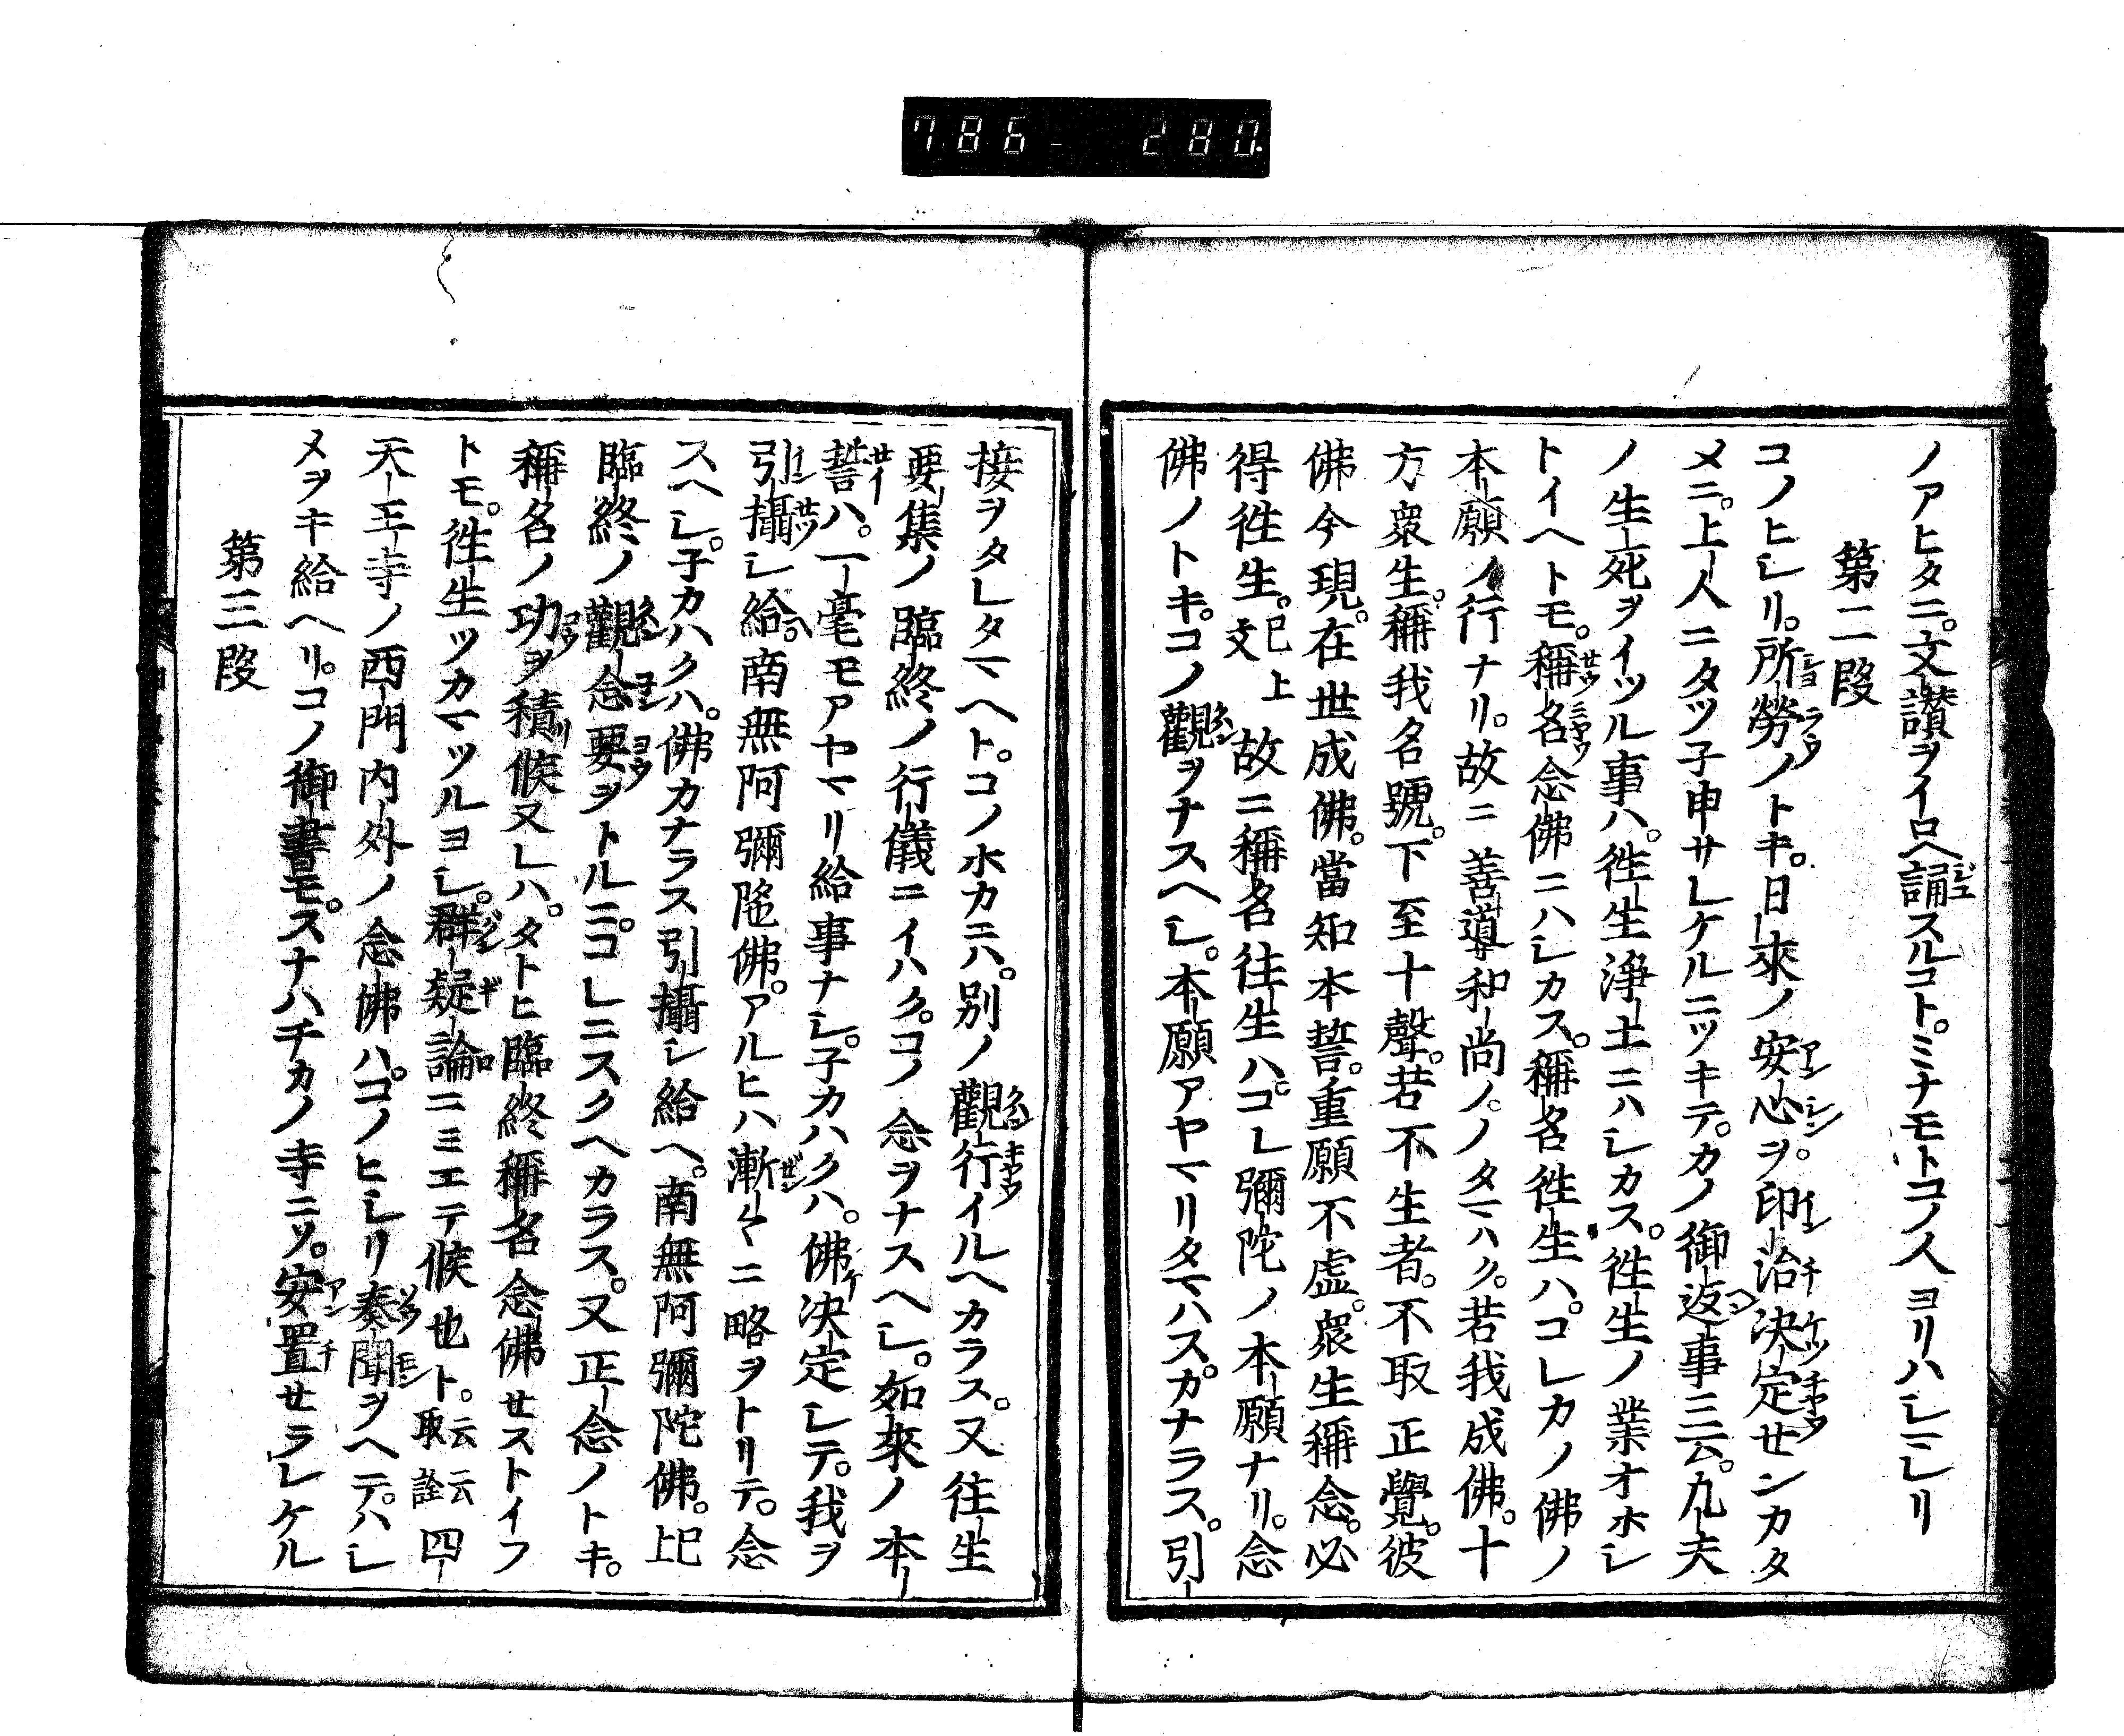 786- 280.
ノアヒタニ。文讃ヲイロヘ誦スルコト。ミナモトコノ人ヨリハシ〓レリ
第二段
コノヒシリ。所勞ノトキ。日來ノ安心ヲ。印治決定セシカタ
メニ。上人ニタツ子申サレケルニツキテ。カノ御返事ニ云。凡夫
ノ生死ヲイツル事ハ。徃生淨土ニハシカス。徃生ノ業オホシ
トイヘトモ。稱名念佛ニハシカス。稱名徃生ハ。コレカノ佛ノ
本願ノ行ナリ。故ニ善導和尚ノ。ノタマハク。若我成佛。十
方衆生。稱我名號。下至十聲。若不生者。不取正覺。彼
佛今現。在世成佛。當知本誓。重願不虚。衆生稱念。必
得徃生。文已上故ニ稱名往生ハ。コレ彌陀ノ本願ナリ。念
佛ノトキ。コノ觀ヲナスヘシ。本願アヤマリタマハス。カナラス。引
接ヲタレタマヘト。コノホカニハ。別ノ觀行イルヘカラス。又往生
要集ノ臨終ノ行儀ニイハク。コノ念ヲナスヘシ。如來ノ本
誓ハ。一毫モアヤマリ給事ナシ。子カハクハ。佛決定シテ。我ヲ
引攝シ給ヘ。南無阿彌陀佛。アルヒハ漸々ニ略ヲトリテ。念
スヘシ。子カハクハ。佛カナラス引攝シ給ヘ。南無阿彌陀佛。已上
臨終ノ觀念要ヲトルニ。コレニスクヘカラス。又正念ノトキ。
稱名ノ功ヲ積候又レハ。タトヒ臨終稱名念佛せストイフ
トモ。徃生ツカマツルヨシ。群疑論ニミエテ候也ト。云云取詮四
天王寺ノ西門内外ノ念佛ハ。コノヒシリ奏聞ヲヘテ。ハシ
メヲキ給ヘリ。コノ御書モ。スナハチカノ寺ニソ。安置せラレケル
第三段